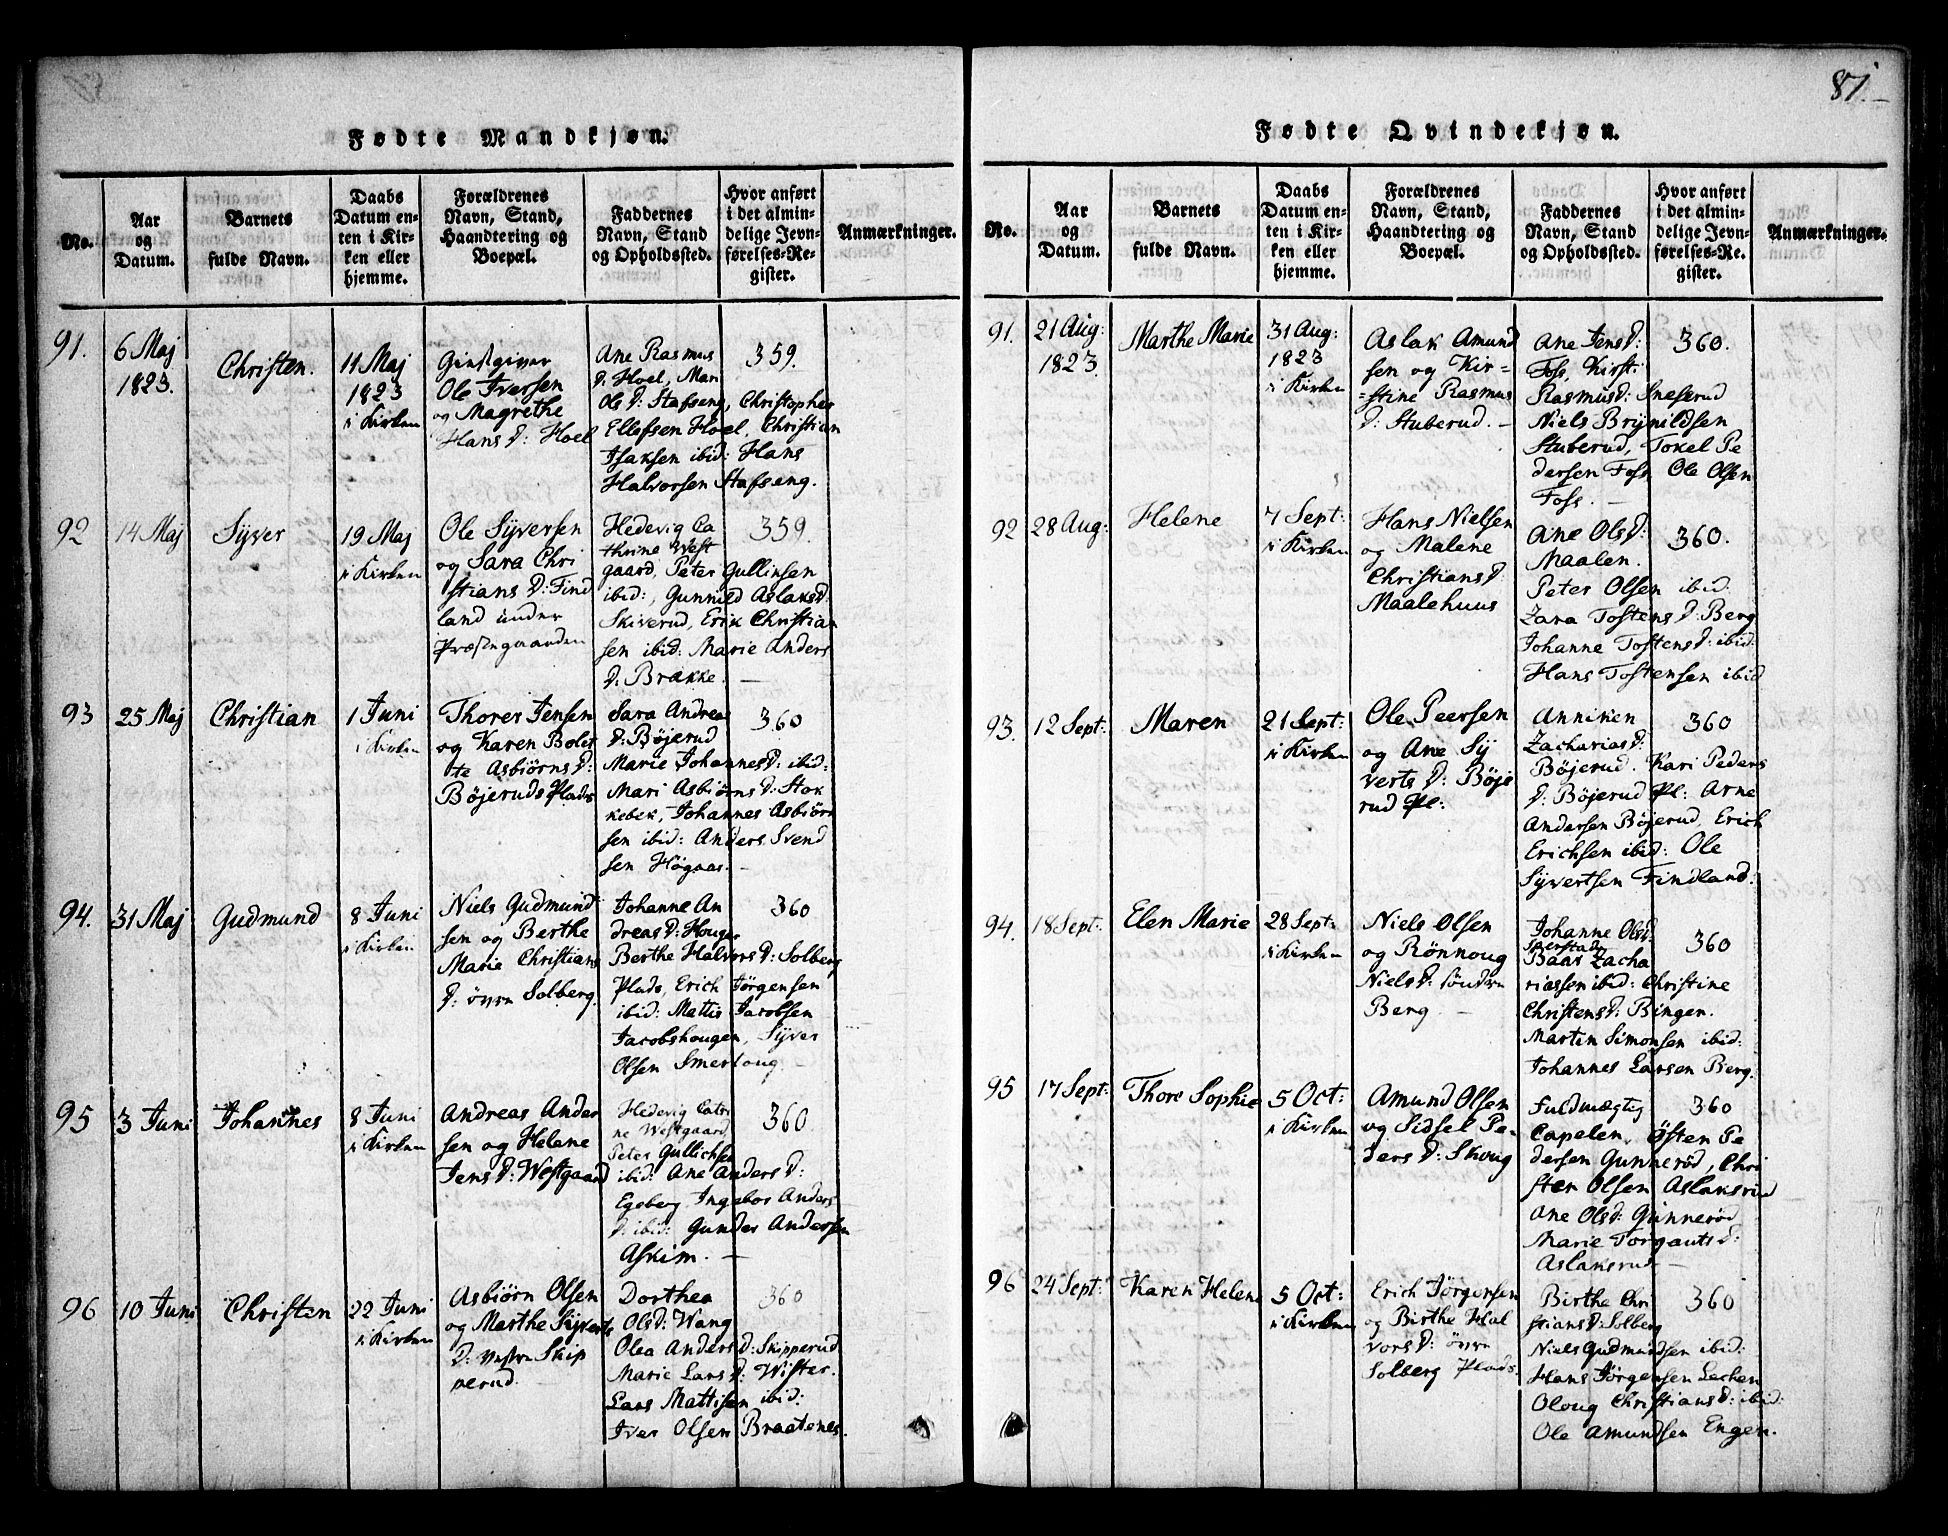 87.
Fødte Mandkjøn.
No.
Aar
og
Datum.
Barnets
fulde Navn.
Daabs
Datum en-
ten i Kir-
ken eller
hjemme.
Forældrenes
Navn, Stand,
Haandtering og
Boepæl.
Faddernes
Navn, Stand
og Opholdssted.
Hvor anført
i det almin-
delige Jevn-
førelses-Re-
gister.
Anmærkninger.
91.
6 Maj
1823.
Christen.
11 Maj
1823
i Kirken
Giestgiver
Ole Iversen
og Magrethe
Hans D: Hoel
Ane Rasmus
D: Hoel, Mari
Ols D: Stafseng, Christopher
Ellefsen Hoel, Christian
Isaksen ibid: Hans
Halvorsen Stafseng.
359.
92
14 Maj
Syver
19 Maj
i Kirken
Ole Syversen
og Sara Chri
stians D: Find
land under
Præstegaarden
Hedevig Ca
thrine West
gaard, Peter Gullinsen
ibid:, Gunnild Aslaks D:
Skiverud, Erik Christian
sen ibid: Marie Anders
D: Brække. —
359.
93
25 Maj
Christian
1 Juni
i Kirken
Thorer Jensen
og Karen Bolet
te Asbiørns D:
Bøjeruds Plads
Sara Andrea
D: Bøjerud
Marie Johannes D: ibid:
Mari Asbiørns D: Stok
kebek, Johannes Asbiørn
sen ibid: Anders Svend
sen Høgaas. —
360
94.
31 Maj
Gudmund
8 Juni
i Kirken
Niels Gudmund
sen og Berthe
Marie Christians
D: øvre Solberg.
Johanne An
dreas D: Houger
Berthe Halvors D: Solberg
Plads, Erich Jørgensen
ibid: Mattis Jacobsen
Jacobshougen, Syver
Olsen Smertoug. —
360
95
3 Juni
Johannes
8 Juni
i Kirken
Andreas Ander
sen og Helene
Jens D: Westgaard
Hedevig Catri
ne Westgaard,
Peter Gullichsen
ibid: Ane Anders D:
Egeberg Ingebor Anders
D: ibid: Gunder Andersen
Askim. —
360
96
10 Juni
Christen
22 Juni
i Kirken
Asbiørn Olsen
og Marthe Syverts
D: vestre Skip
perud.
Dorthea
Ols D: Wang
Olea Anders D: Skipperud
Marie Lars D: Wister.
Lars Mattisen ibid:
Iver Olsen Braatenes.
360
Fødte Qvindekjøn.
No.
Aar
og
Datum.
Barnets
fulde Navn.
Daabs
Datum en-
ten i Kir-
ken eller
hjemme.
Forældrenes
Navn, Stand,
Haandtering og
Boepæl.
Faddernes
Navn, Stand
og Opholdssted.
Hvor anført
i det almin-
delige Jevn-
førelses-Re-
gister.
Anmærkninger.
91.
21 Aug:
1823.
Marthe Marie
31 Aug:
1823
i Kirken
Aslak Amund
sen og Kir=
=stine Rasmus
D: Stuberud. —
Ane Jens D:
Foss, Kirst:
Rasmus D: Sneserud
Niels Brynildsen
Stuberud, Tokel Pe
dersen Foss Ole Olsen
Foss. —
360.
92
28 Aug:
Helene
7 Sept:
i Kirken
Hans Nielsen
og Malene
Christians D:
Maalehuus
Ane Ols D:
Maalen.
Peter Olsen ibid:
Zara Tostens D: Berg
Johanne Tostens D: ibid:
Hans Tostensen ibid
360.
93.
12 Sept:
Maren
21 Sept:
i Kirken
Ole Peersen
og Ane Sy
verts D: Bøje
rud Pl:
Anniken
Zacharias D:
Bøjerud. Kari Peders
D: Bøjerud Pl: Arne
Andersen Bøjerud, Erich
Erichsen ibid: Ole
Syvertsen Findland.
360
94.
18 Sept:
Elen Marie
28 Sept:
i Kirken
Niels Olsen
og Rønnoug
Niels D: søndre
Berg —
Johanne Ols D:
Baar Zacha
riassen ibid: Christine
Christens D: Bingen.
Martin Simonsen ibid:
Johannes Larsen Berg.
360
95
17 Sept:
Thore Sophie
5 Oct:
i Kirken
Amund Olsen
og Sidsel Pe-
ders D: Skoug
Fuldmægtig
Capelen, Østen Pe
dersen Gunnerød, Chri
sten Olsen Aslaksrud
Ane Ols D: Gunnerød
Marie Torgauts D:
Aslaksrud —
360
96
24 Sept:
Karen Helene
5 Oct:
i Kirken
Erich Jørgensen
og Birthe Hal
vors D: øvre
Solberg Plads.
Birthe Chri
stians D: Solberg
Niels Gudmundsen ibid:
Hans Jørgensen Lecken
Oloug Christians D: ibid:
Ole Amundsen Engen.
360